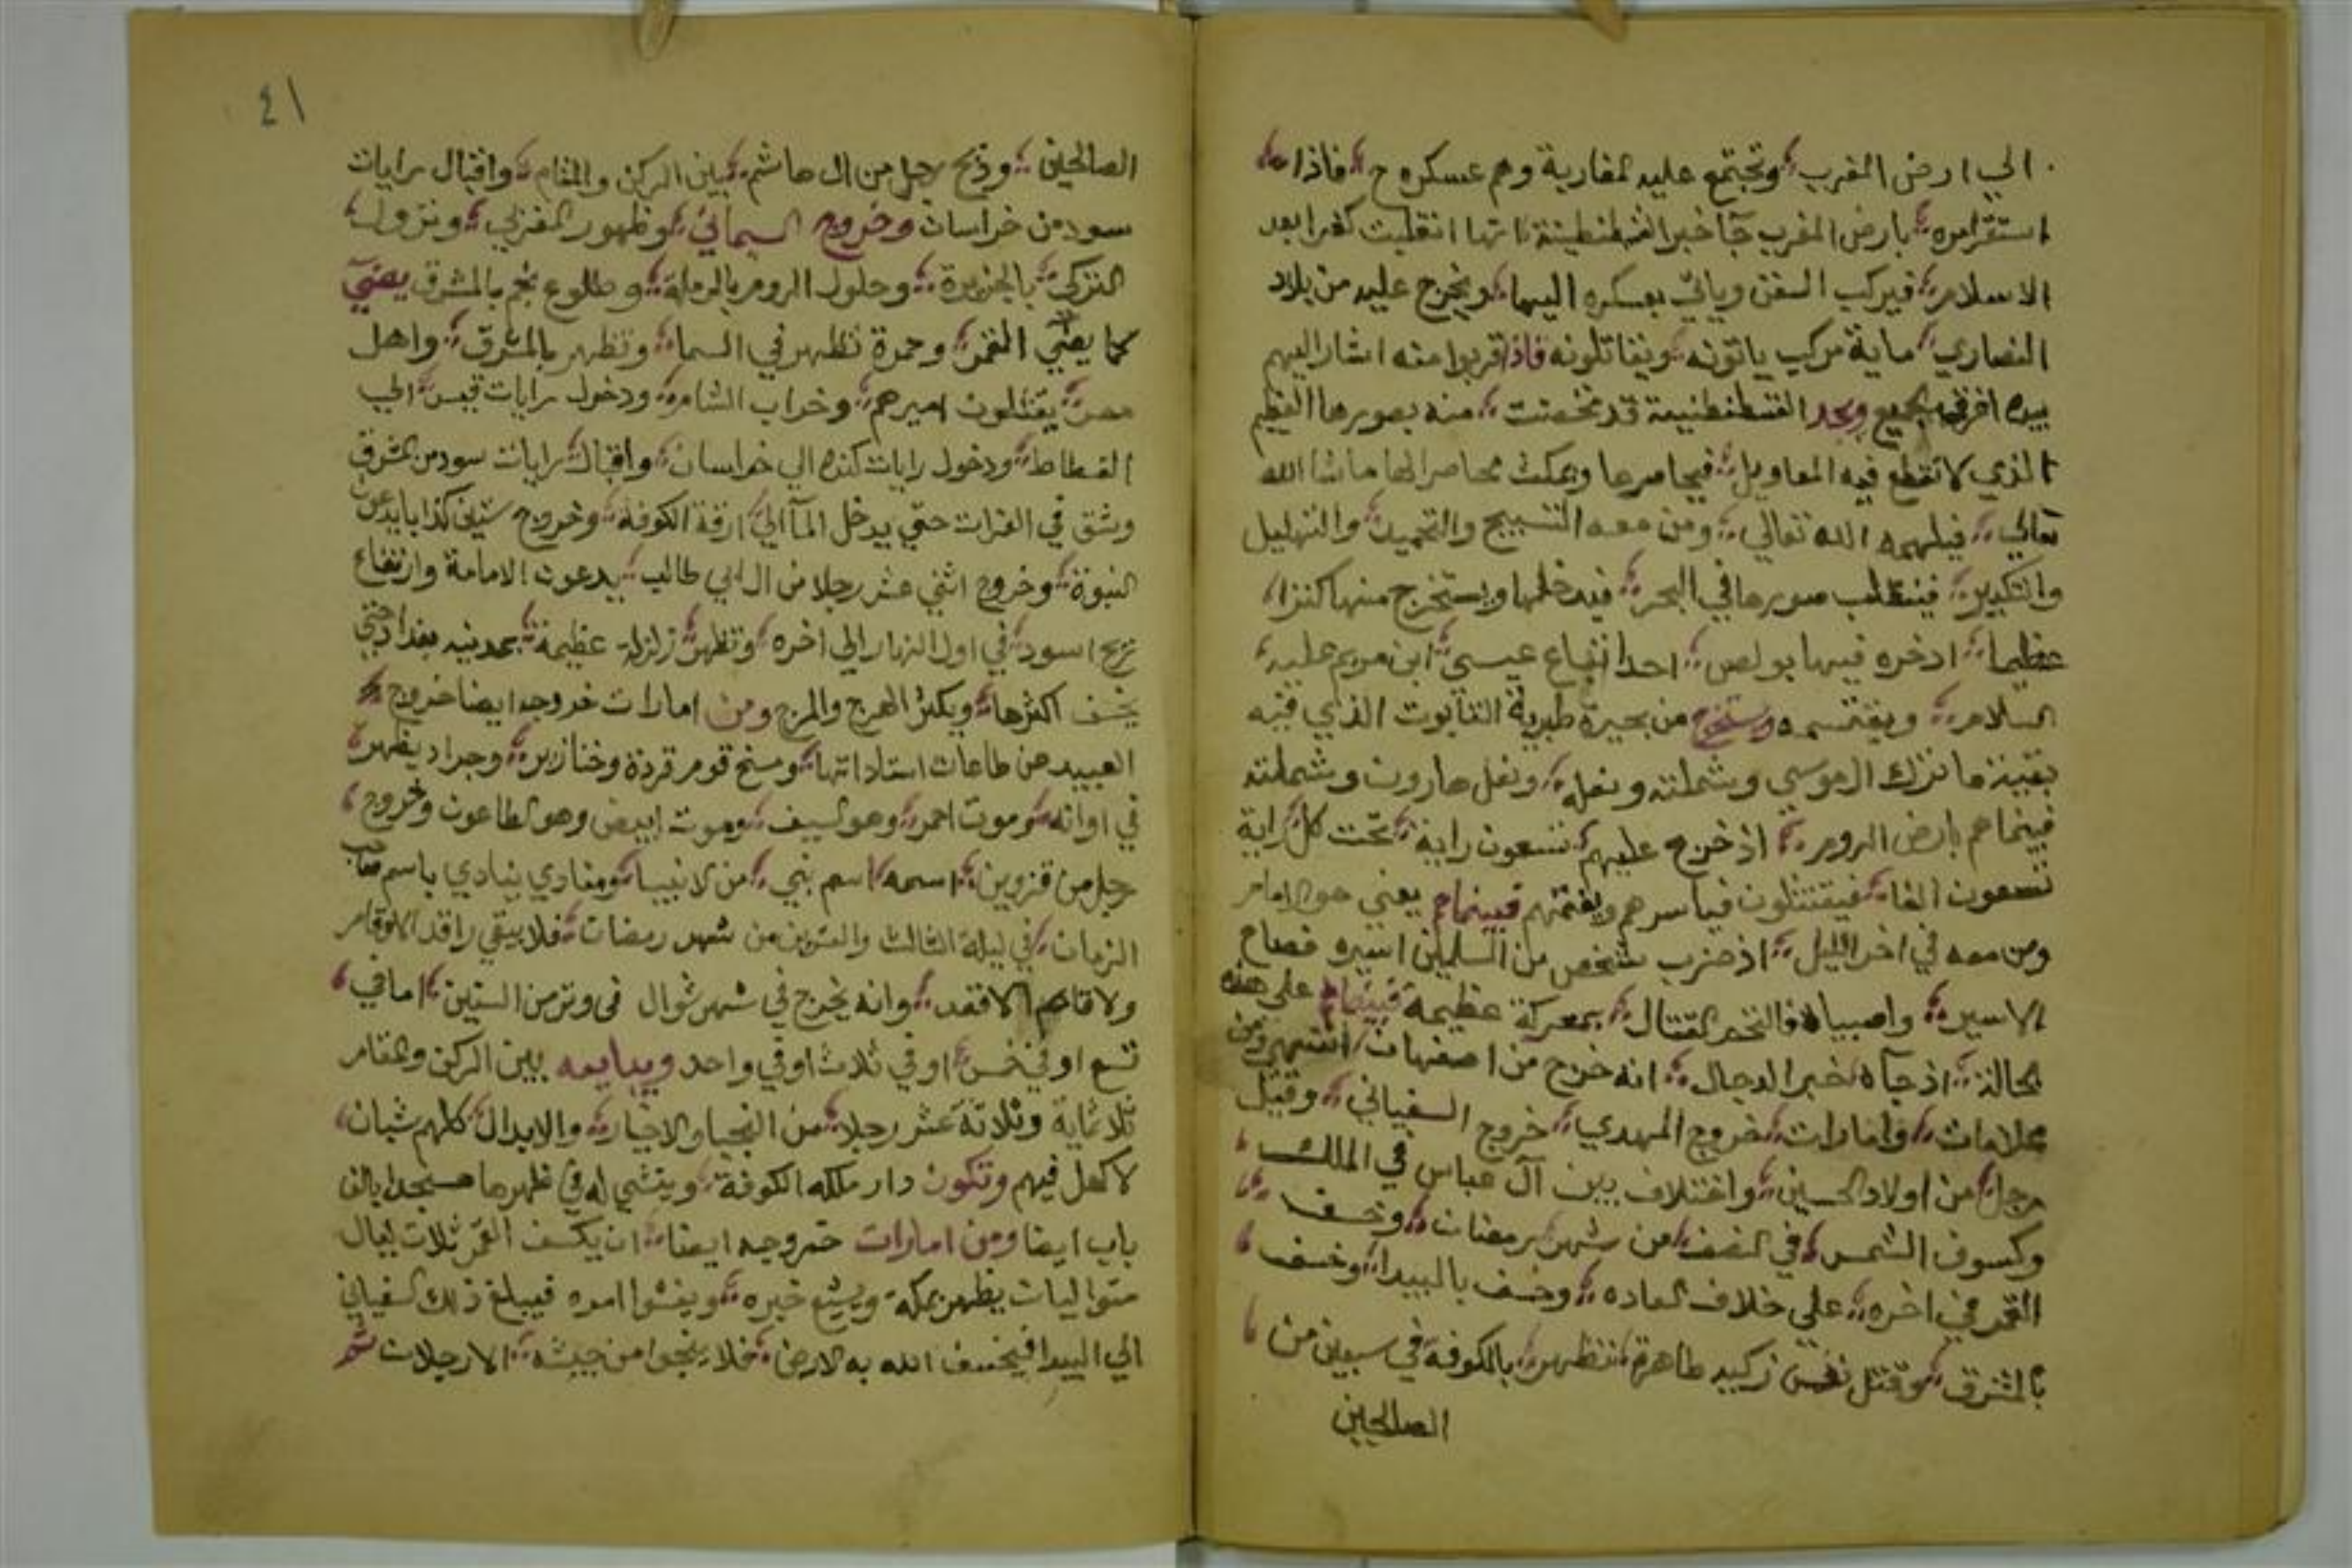 الي ارض المغرب وتجتمع عليه لمغاربة وهم عسكره ح فاذا
استقرامره بارض المغرب جآ خبر القسطنطينة انها انقلبت كفرا بعد
الاسلام فيركب السفن وياتي بعسكره اليها ويخرج عليه من بلاد
النصاري ماية مركب ياتونه ويقاتلونه فاذا قربوا منه اشار اليهم
بيده الجميع ويجد القسطنطنية قد تحصنت منه بصورها العظيم
الذي لا تقطع فيه المعاويل فيحاصرها ويمكث محاصرالها ما شا الله
تعالي فيلهمه الله تعالي ومن معه التسبيح والتحميد والتهليل
والتكبير فينقلب صورها في البحر فيدخلها ويستخرج منها كنزا
عظيما ادخره فيها بولص احد اتباع عيسي ابن مريم عليه
السلام ويقتسمه ويستخرج من بحيرة طبرية التابوت الذي فيه
بقية ما ترك ال موسي وشملته ونعله ونعل هارون وشملته
فبينماهم بارض الروم اذ خرج عليهم تسعون راية تحت كل راية
تسعون الفا فيقتتلون فياسرهم ويغتنم فبينماهم يعني هو الامام
ومن معه في اخر الليل اذ ضرب شخص من المسلمين اسيره فصاح
الاسير واصبياه فالتحم القتال بمعركة عظيمة فبينما على هذه
الحالة اذ جآه خبر الدجال انه خرج من اصفهان انتهي ومن
علامات وامارات خروج المهدي خروج السفياني وقيل
رجل من اولاد الحسين واختلاف بين آل عباس في الملك
وكسوف الشمس في النصف من شهر رمضان وخسف
القمر في اخره على خلاف العاده وخسف بالبيدا وخسف
بالمشرق وقتل نفس زكيه طاهرة تظهر بالكوفة في سبعين من
الصالحين
٤١
الصالحين وذبح رجل من ال هاشم بين الركن والمقام واقبال رايات
سود من خراسان وخروج اليماني وظهور المغربي ونزول
التركي بالجزيرة وحلول الروم بالرملة وطلوع نجم بالمشرق يضيَ
كما يضي القمر وحمرة تظهر في السما وتظهر بالمشرق واهل
مصر يقتلون اميرهم وخراب الشام ودخول رايات قيس الي
الفسطاط ودخول رايات كنده الي خراسان واقبال رايات سود من المشرق
وشق في الفرات حتي يدخل المآ الي ازقة الكوفة وخروج ستين كذابا يدعون
النبوة وخروج اثني عشر رجلا من ال ابي طالب يدعون الامامة وارتفاع
ريح اسود في اول النهار الي اخره وتظهر زلزلة عظيمة بمدينه بغداد حتي
يخسف اكثرها ويكثر الهرج والمرج ومن امارات خروجه ايضا خروج
العبيد من طاعات استاداتها ومسخ قوم قردة وخنازير وجراد يظهر
في اوانه وموت احمر وهو السيف وموت ابيض وهو الطاعون وخروج
رجل من قزوين اسمه اسم نبي من لانبيا ومنادي ينادي باسم صاحب
الزمان في ليلة الثالث والعشرين من شهر رمضان فلا يبقي راقد الا وقام
ولا قايم الا فقد وانه يخرج في شهر شوال في وتر من السنين اما في
تسع او في خمس او في ثلاث او في واحد ويبايعه بين الركن والمقام
ثلاثماية وثلاثة عشر رجلا من النجبا والاخيار والابدال كلهم شبان
لا كهل فيهم وتكون دار ملكه الكوفة وينشي له في ظهرها مسجدا بالف
باب ايضا ومن امارات خروجه ايضا ان يكسف القمر ثلاث ليال
متواليات يظهر بمكة ويشيع خبره ويفشوا امره فيبلغ ذلك السفياني
الي البيدا فيخسف الله به الارض فلا ينجوا من جيشه الا رجلان ثم